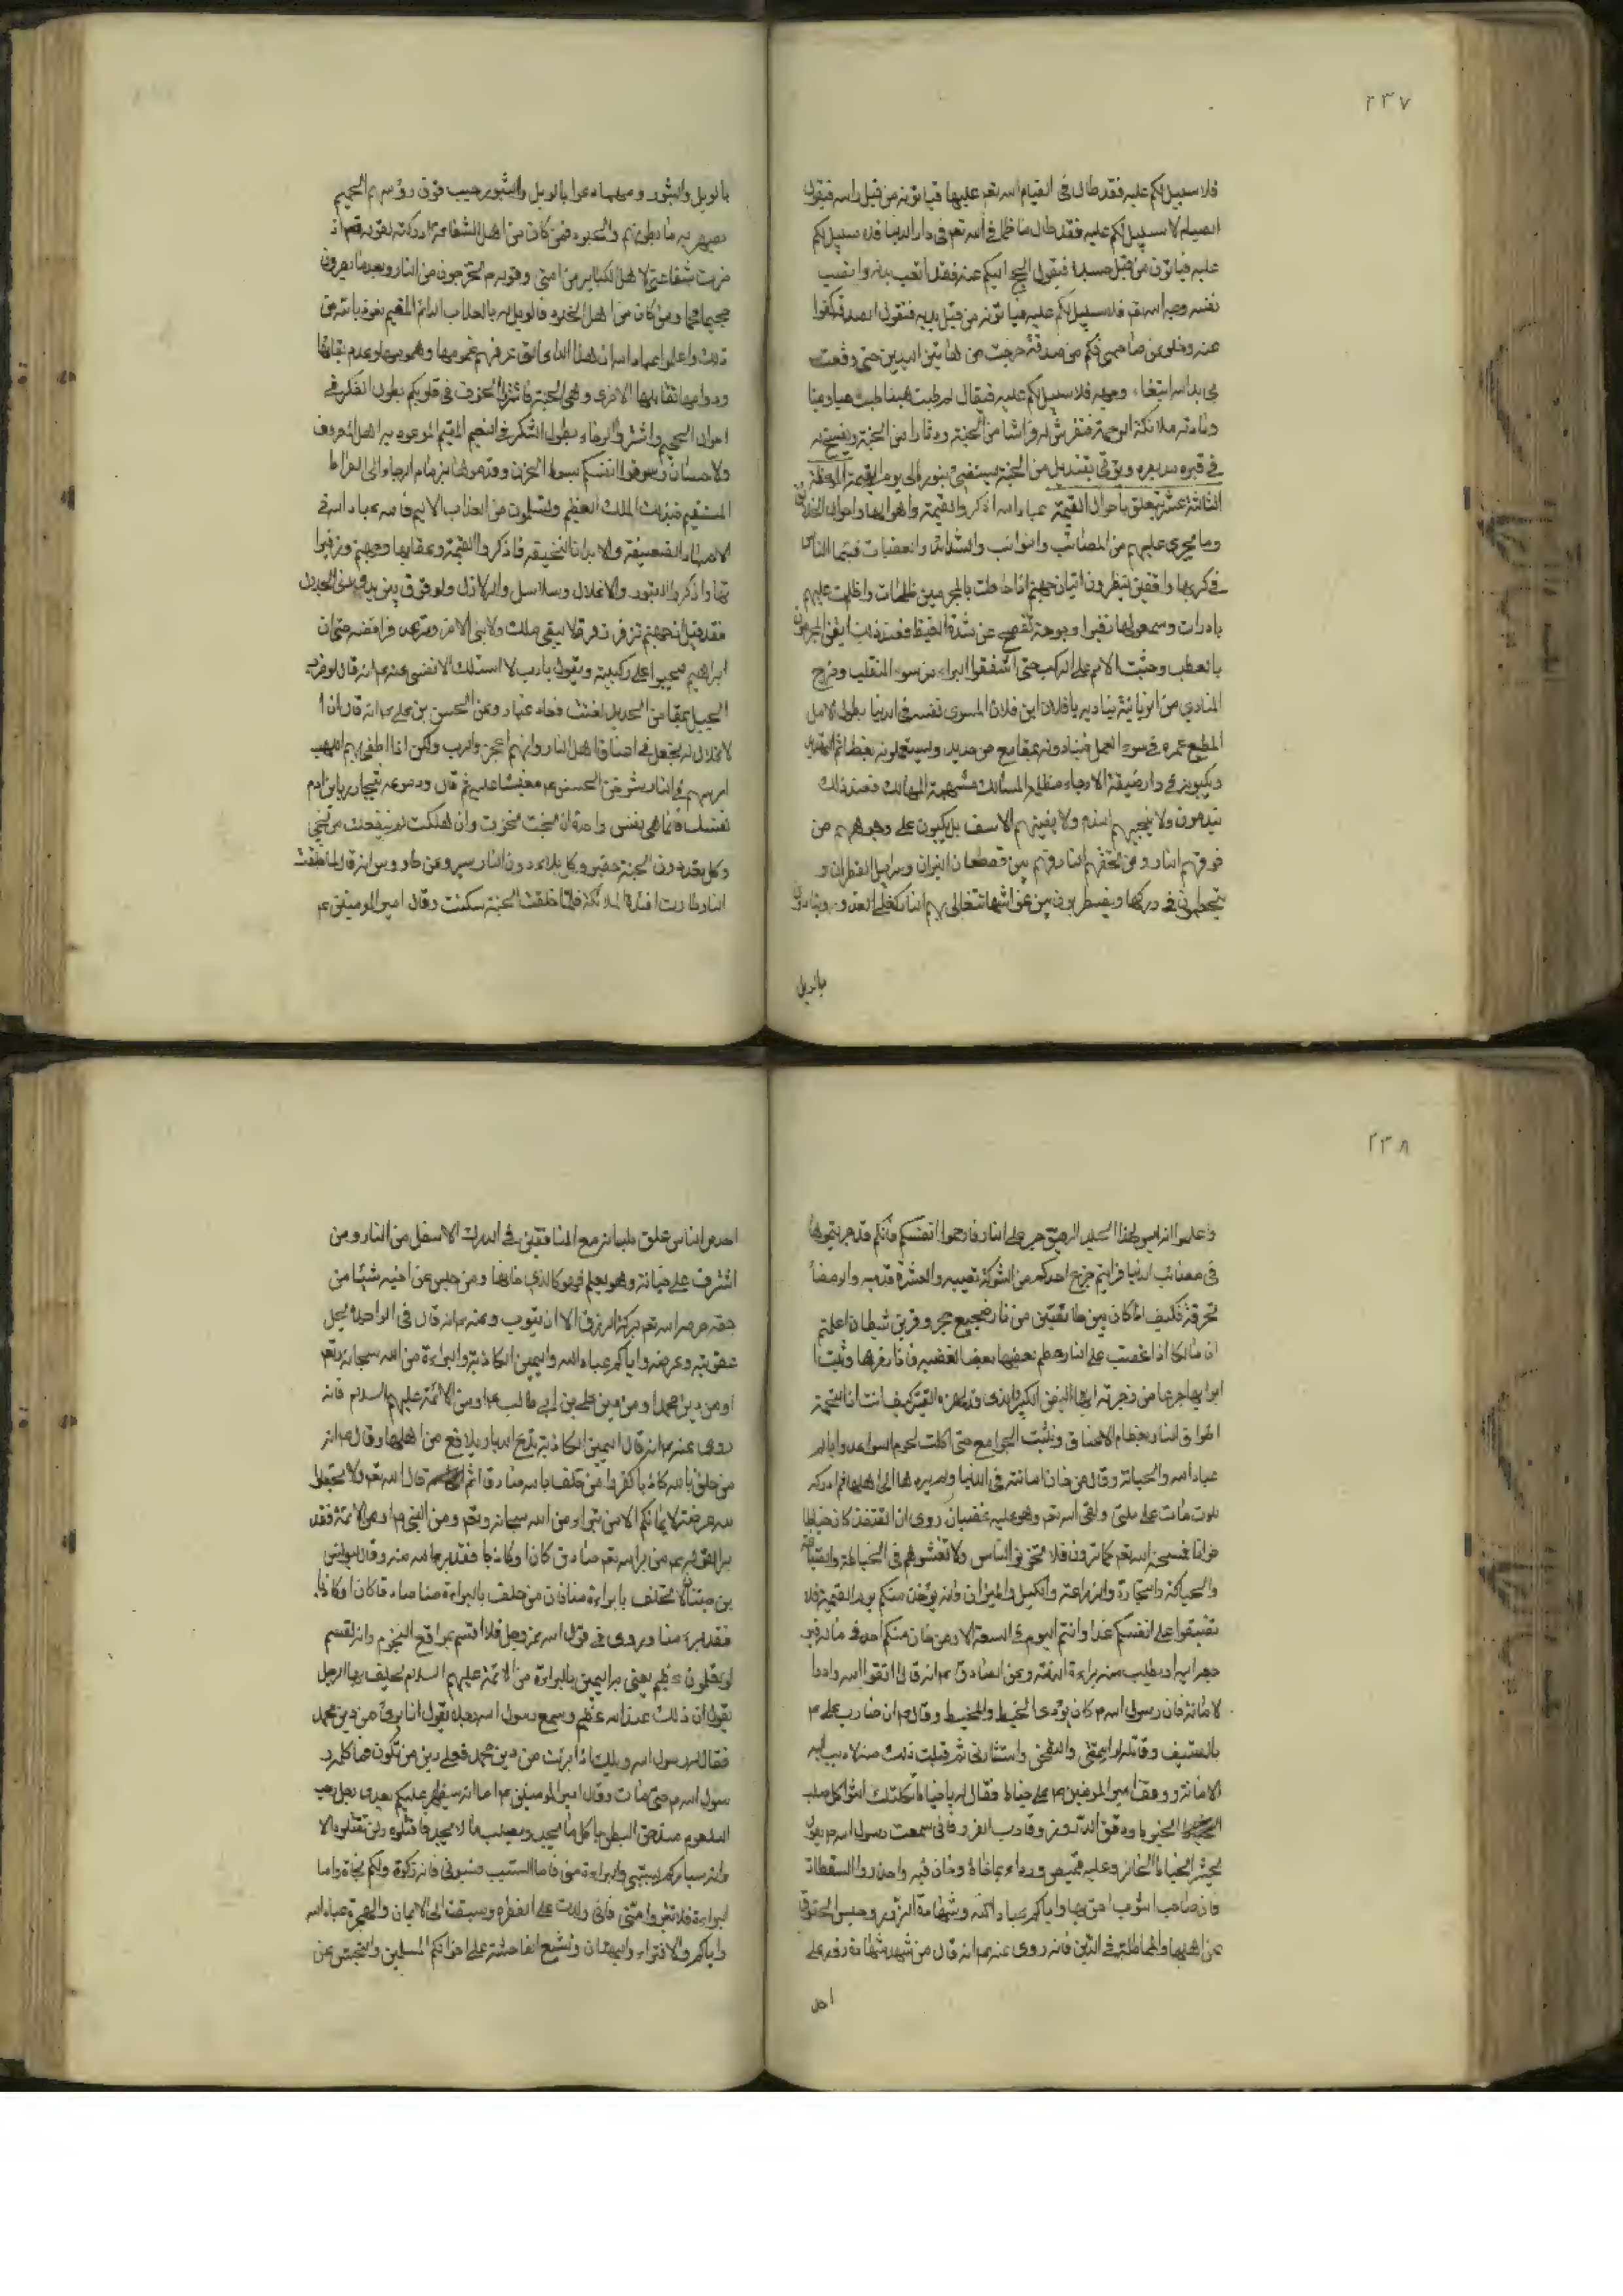 ٢٣٧
فلا سبيل لكم عليه فقد طال فى القيام لله تعم عليها فياتونه من قبل راسه فيقول
الصيام لا سبيل لكم عليه فقد طال ما ظمأ فى الله تعم فى دار الدنيا فلا سبيل لكم
عليه فياتون من قبل جسده فيقول الحج اليكم عنه فقد اتعب بدنه وانصب
نفسه وحج لله تعم فلا سبيل لكم عليه فياتونه من قبل يديه فتقول الصدقة كفوا
عنه وخلوا عن صاحبى فكم من صدقة خرجت من هاتين اليدين حتى وقعت
فى يد الله ابتغاء وجهه فلا سبيل لكم عليه فيقال له طبت هنيئا طبت حيا وميتا
وتاتيه ملائكة الرحمة فتفرش له فراشا من الجنة ودثارا من الجنة ويفسح له
فى قبره مد بصره ويؤتى بقنديل من الجنة يستضئ بنوره الى يوم القيمة الموعظة
الثالثة عشر تتعلق باحوال القيمة عباد الله اذكروا القيمة واهوالها واحوال الخلائق
وما يجرى عليهم من المصائب والنوائب والشدائد والعقبات فبينما الناس
فى كربها واقفين ينظرون اتيان جهنم اذا احاطت بالمجرمين ظلمات واظلت عليهم
بادرات وسمعوا لها زفيرا وجرجرة تفصح عن شدة الغيظ فعند ذلك ايقن المجرمون
بالعطب وجثت الامم على الركب حتى اشفقوا البراء من سوء المنقلب وخرج
المنادي من الزبانية ينادي يا فلان ابن فلان المسوف نفسه فى الدنيا بطول الامل
المضيع عمره فى سوء العمل فيبادرونه بمقامع من حديد ويستقبلونه بعظائم التهديد
ويكبونه فى دار ضيقة الارجاء مظلمة المسالك مبهمة المهالك فعند ذلك
يندمون ولا ينجيهم الندم ولا يغنيهم الاسف بل يكبون على وجوههم من
فوقهم النار ومن تحتهم النار وهم بين مقطعات النيران وسرابيل القطران و
يتحطمون فى دركها ويضطربون بين غواشيها تغلى بهم النار كغلى القدور وينادون
بالويل
بالويل والثبور ومهما دعوا بالويل والثبور صب فوق رؤسهم الحميم
يصهر به ما فى بطونهم والجلود فمن كان من اهل الشفاعة ادركته لقوله
ذخرت شفاعتي لاهل الكبائر من امتى وقوله يخرجون من النار وبعد ما يصيرون
حميما فحما ومن كان من اهل الخلود فالويل له بالعذاب الدائم المقيم نعوذ بالله من
ذلك واعلموا عباد الله ان هذا الدار التى عرفتم غمومها وهمومها وعدم بقائها
ودوامها تقابلها الاخرى وهى الجنة فاثروا الخوف فى قلوبكم بطول التفكر فى
اهوال الجحيم واثيروا الرجاء بطول التفكر فى النعيم المقيم الموعود به اهل المعروف
والاحسان وسوقوا انفسكم بسوط الحزن وقودوها بزمام الرجاء الى الصراط
المستقيم فبذلك الملك العظيم وتسلمون من العذاب الاليم فالله عباد الله فى
الاجساد الضعيفة والابدان النحيفة فاذكروا القيمة وعقابها وجهنم وزفيرها
واذكروا القبور والاغلال وسلاسل والزلازل والوقوف بين يدى
فقد قيل ان جهنم تزفر زفرة لا يبقى ملك ولا نبى الا خر وترعد فرائصه حتى ان
ابراهيم يجثوا على ركبتيه ويقول يا رب لا اسئلك الا نفسى وعنه م انه قال لو ضرب
الجبل بمقمع من الحديد لفتت فعاد غبار وعن الحسن بن على م انه قال ان ا
لاغلال لم تجعل فى اعناق اهل النار لانهم اعجزوا الرب ولكن اذا طفى بهم اللهب
ارسبهم فى النار ثم خر الحسن م مغشيا عليه ثم قال ودموعه تتحادر يا بن ادم
نفسك فانما هى نفس واحدة ان نجت نجوت وان هلكت لم ينفعك من نجى
وكل نعيم دون الجنة حقير وكل بلاء دون النار يسير وعن طاووس انه قال لما خلقت
النار طارت افئدة الملائكة فلما خلقت الجنة سكنت وقال امير المومنين م
٢٣٨
واعلموا انه ليس لهذا الجلد الرقيق صبر على النار فارحموا انفسكم فانكم قد جربتموها
فى مصائب الدنيا فرايتم جزع احدكم من الشوكة تصيبه والعثرة تدميه والرمضاء
تحرقه فكيف اذا كان بين طابقين من نار ضجيع حجر وقرين شيطان اعلمتم
ان مالكا اذا غضب على النار حطم بعضها بعضا لغضبه واذا زجرها توثبت
ابوابها جزعا من زجرته ايها اليفن الكبير الذى قد لهزه القتير كيف انت اذا التحمت
اطواق النار بعظام الاعناق ونشبت الجوامع حتى اكلت لحوم السواعد واياكم
عباد الله والخيانة وقال من خان امانته فى الدنيا ولم يردها الى اهلها ثم ادركه
الموت مات على غير ملتى ولقى الله تعم وهو عليه غضبان روى ان القنفذ كان خياطا
خوانا فمسخه الله تعم كما ترون فلا تخونوا الناس ولا تغشوهم فى الخياطة والقيافة
والحياكة والتجارة والزراعة والكيل والميزان فانه يؤخذ منكم يوم القيمة فلا
تضيقوا على انفسكم غدا وانتم اليوم فى السعة الا ومن خان منكم احدا فى ماله
اليه او يطلب منه براءة الذمة وعن الصادق م انه قال اتقوا الله وادوا
لامانة فان رسول الله م كان يؤدى الخيط والمخيط وقال م ان ضارب على م
بالسيف وقاتله لو ائتمننى واستنصحنى واستشارنى ثم قبلت ذلك منه لاديت اليه
الامانة ووقف امير المومنين م على خياط فقال له يا خياط ثكلتك الثواكل صلب
الخيوط ودقق الدروز وقارب الغرز فانى سمعت رسول الله م يقول
يحشر الخياط الخائن وعليه قميص ورداء مما خاطه وخان فيه واحذروا السقطات
فان صاحب الثوب احق بها واياكم عباد الله وشهادة الزور وحبس الحقوق
عن اهلها والمماطلة فى الدين فانه روى عنه م انه قال من شهد شهادة زور على
احد
احد من الناس علق بلسانه مع المنافقين فى الدرك الاسفل من النار ومن
اشترى على خيانة وهو يعلم فهو كالذي خانها ومن حبس عن اخيه شيئا من
حقه حرم الله تعم بركة الرزق الا ان يتوب وعنه م انه قال لى الواجد يحل
عقوبته وعرضه واياكم عباد الله واليمين الكاذبة والبراءة من الله سبحانه وتعم
او من دين محمد او من دين على بن ابي طالب م او من الائمة عليهم السلام فانه
روى عنه م انه قال اليمين الكاذبة تدع الديار بلاقع من اهلها وقال م انه
من حلف بالله كاذبا كفر ومن حلف بالله صادقا اثم قال الله تعم ولا تجعلوا
الله عرضة لايمانكم الا من تبراء من الله سبحانه وتعم ومن النبى م او من الائمة فقد
براء الله م من برا الله تعم صادق كان او كاذبا فقد برء الله منه وقال يونس
بن ظبيان لا تحلف بالبراءة منا فان من حلف بالبراءة منا صادقا كان او كاذبا
فقد برء منا وروى فى قول الله عز وجل فلا اقسم بمواقع النجوم وانه لقسم
لو تعلمون عظيم يعنى به اليمين بالبراءة من الائمة عليهم السلام يحلف بها الرجل
يقول ان ذلك عند الله عظيم وسمع رسول الله رجلا يقول انا برئ من دين محمد
فقال له رسول الله ويلك اذا برئت من دين محمد فعلى دين من تكون فما كلمه ر
سول الله م حتى مات وقال امير المومنين م اما انه سيظهر عليكم بعدى رجل رحب
البلعوم مندحق البطن ياكل ما يجد ويطلب ما لا يجد فاقتلوه ولن تقتلوه الا
وانه سيامركم بسبى والبراءة منى فاما السب فسبونى فانه زكوة ولكم نجاة واما
البراءة فلا تتبروا منى فانى ولدت على الفطرة وسبقت الى الايمان والهجرة عباد الله
واياكم والافتراء والبهتان وتشيع الفاحشة على اخوانكم المسلمين والتجسس عن